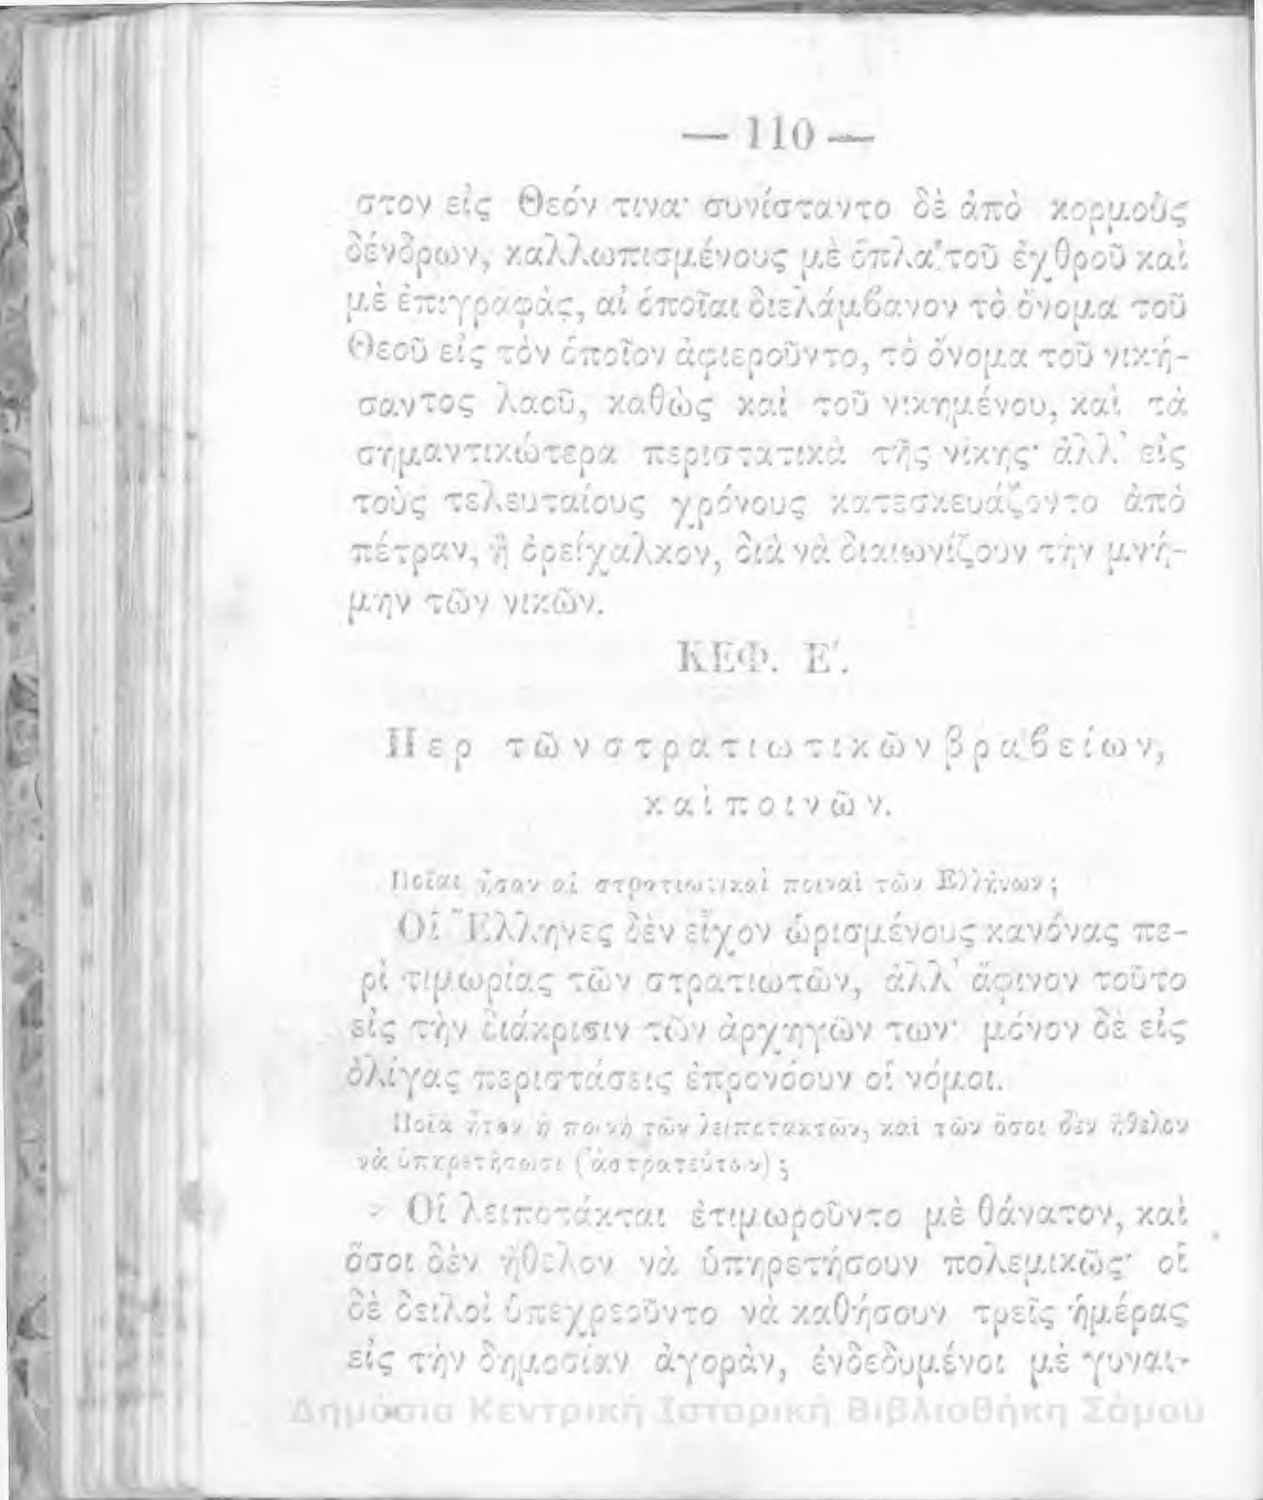 — 110 —
στον εἰς Θεόν τινα· συνίσταντο δὲ ἀπὸ κορμοὺς
δένδρων, καλλωπισμένους μὲ ὅπλα τοῦ ἐχθροῦ καὶ
μὲ ἐπιγραφὰς, αἱ ὁποῖαι διελάμβανον τὸ ὄνομα τοῦ
Θεοῦ εἰς τὸν ὁποῖον ἀφιεροῦντο, τὸ ὄνομα τοῦ νική-
σαντος λαοῦ, καθὼς καὶ τοῦ νικημένου, καὶ τὰ
σημαντικώτερα περιστατικὰ τῆς νίκης· ἀλλ' εἰς
τοὺς τελευταίους χρόνους κατεσκευάζοντο ἀπὸ
πέτραν, ἢ ὀρείχαλκον, διὰ νὰ διαιωνίζουν τὴν μνή-
μην τῶν νικῶν.
ΚΕΦ. Ε΄.
Περ τῶν στρατιωτικῶν βραβείων,
καὶ ποινῶν.
Ποῖαι ἦσαν αἱ στρατιωτικαὶ ποιναὶ τῶν Ἑλλήνων;
Οἱ Ἕλληνες δὲν εἶχον ὡρισμένους κανόνας πε-
ρὶ τιμωρίας τῶν στρατιωτῶν, ἀλλ' ἄφινον τοῦτο
εἰς τὴν διάκρισιν τῶν ἀρχηγῶν των· μόνον δὲ εἰς
ὀλίγας περιστάσεις ἐπρονόουν οἱ νόμοι.
Ποία ἦτον ἡ ποινὴ τῶν λειποτακτῶν, καὶ τῶν ὅσοι δὲν ἤθελον
νὰ ὑπηρετήσωσι (ἀστρατεύτων);
Οἱ λειποτάκται ἐτιμωροῦντο μὲ θάνατον, καὶ
ὅσοι δὲν ἤθελον νὰ ὑπηρετήσουν πολεμικῶς· οἱ
δὲ δειλοὶ ὑπεχρεοῦντο νὰ καθήσουν τρεῖς ἡμέρας
εἰς τὴν δημοσίαν ἀγορὰν, ἐνδεδυμένοι μὲ γυναι-
Δημόσια Κεντρική Ιστορική Βιβλιοθήκη Σάμου